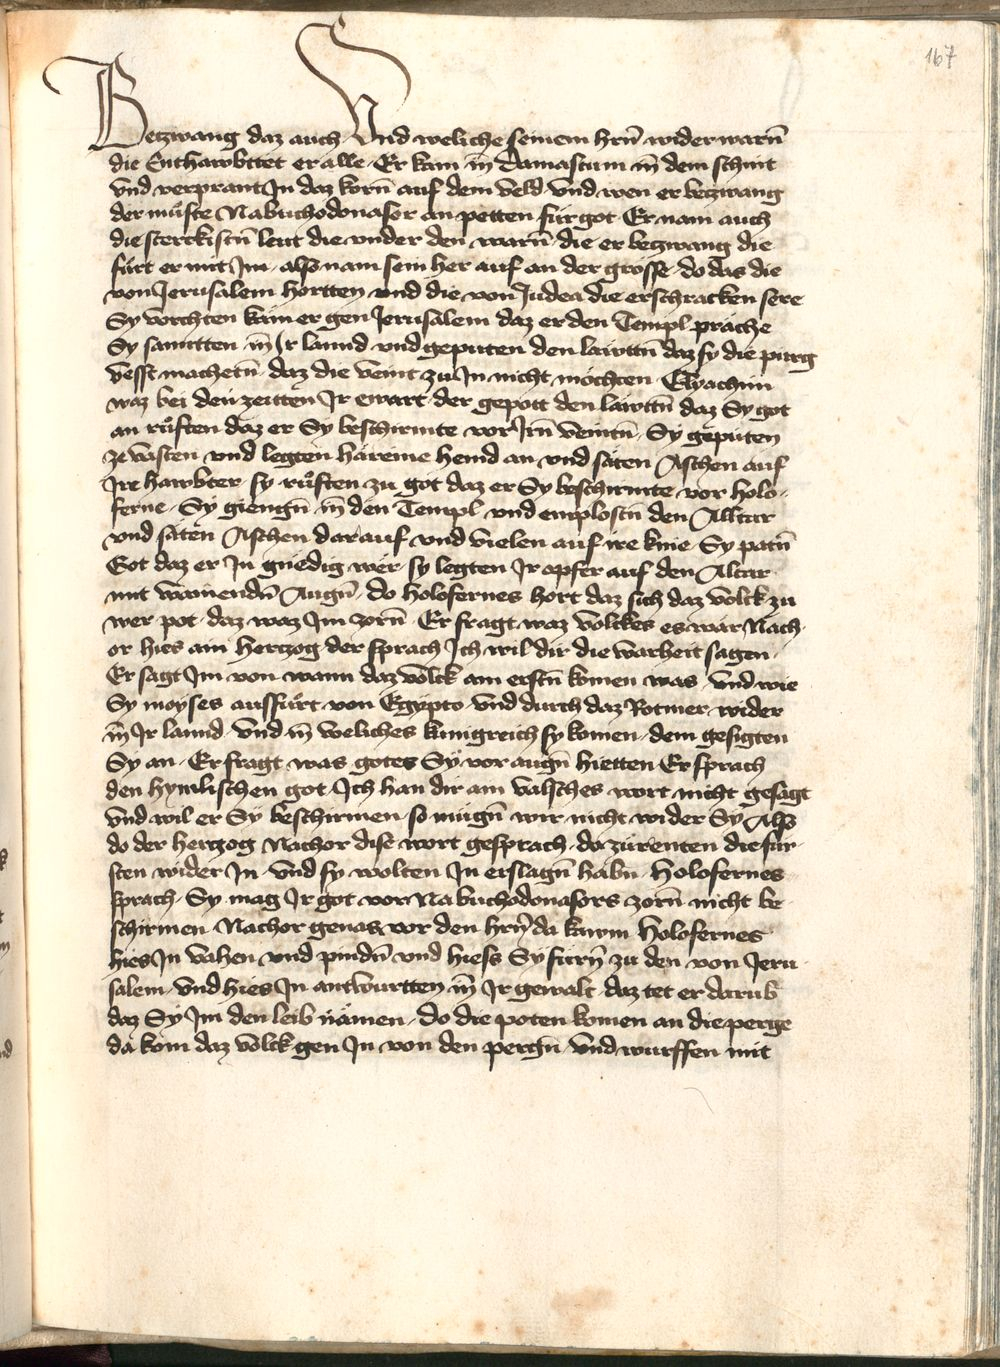 167
Betzwang daz auch Und weliche seinem hrn̄ wider warn̄
die Enthawbttet er alle Er kam in̄ Damascum in̄ dem schnit
vnd verprant In daz korn̄ auf dem veld vnd wen er betzwang
der mu̇ste Nabuchodonasor an petten fur got Er nam auch
die sterckistn̄ leut die vnder den warn̄ die er betzwang die
fürt er mit Im also nam sein her auf an der grosse do das die
von Jerusalem hortten vnd die von Judea die erschracken sere
Sy vorchten käm er gen Jerusalem daz er den Templ präche
Sy samtten in Ir lannd vnd geputen den läwttn̄ daz sy die purg
vesst machetn̄ daz die veint zu In nicht möchten Elyachim
waz bei den zeitten Ir ewart der gepott den läwttn̄ daz Sy got
an ru̇ften daz er Sy beschirmte vor Irn̄ veintn̄ Sy geputen
ze vasten vnd legten häreine hemd an vnd säten Aschen auf
Ire hawbter sy ru̇ften zu got daz er Sy beschirmte vor Holo-
ferne Sy giengn̄ in̄ den Templ vnd emplostn̄ den Alltar
vnd säten Aschen darauf vnd vielen auf ire knie Sy patn̄
Got daz er In gnedig wer sy legten Ir opfer auf den Altar
mit wainendn̄ Augn̄ do Holofernes hort daz sich daz volck zu
wer pot daz waz Im zorn̄ Er fragt waz volckes es wär Nach
or hies ain hertzog der sprach Ich wil dir die warheit sagen
Er sagt Im von wann daz volck am erstn̄ komen was vnd wie
Sy moyses ausfu̇rt von Egypto vnd durch daz Rotmer wider
in̄ Ir lannd vnd in̄ weliches kunigreich sy komen dem gesigten
Sy an Er fragt was gotes Sy vor augn̄ hietten Er sprach
den hymlischen got Ich han dir ain valsches wort nicht gesagt
vnd wil er Sy beschirmen so mügn̄ wir nicht wider Sy Also
do der hertzog Nachor dise wort gesprach do zürenten die für-
sten wider In vnd sy wolten In erslagn̄ habn̄ Holofernes
sprach Sy mag Ir got vor Nabuchodonasors zorn̄ nicht be-
schirmen Nachor genas vor den hrn̄ da kawm Holofernes
hies In vahen vnd pindn̄ vnd hiess Sy furn̄ zu den von Jeru
salem vnd hies In antwurtten in̄ Ir gewalt daz tet er darub
daz Sy Im den leib nämen do die poten komen an die perge
da kom daz volck gen In von den pergn̄ vnd wurffen mit